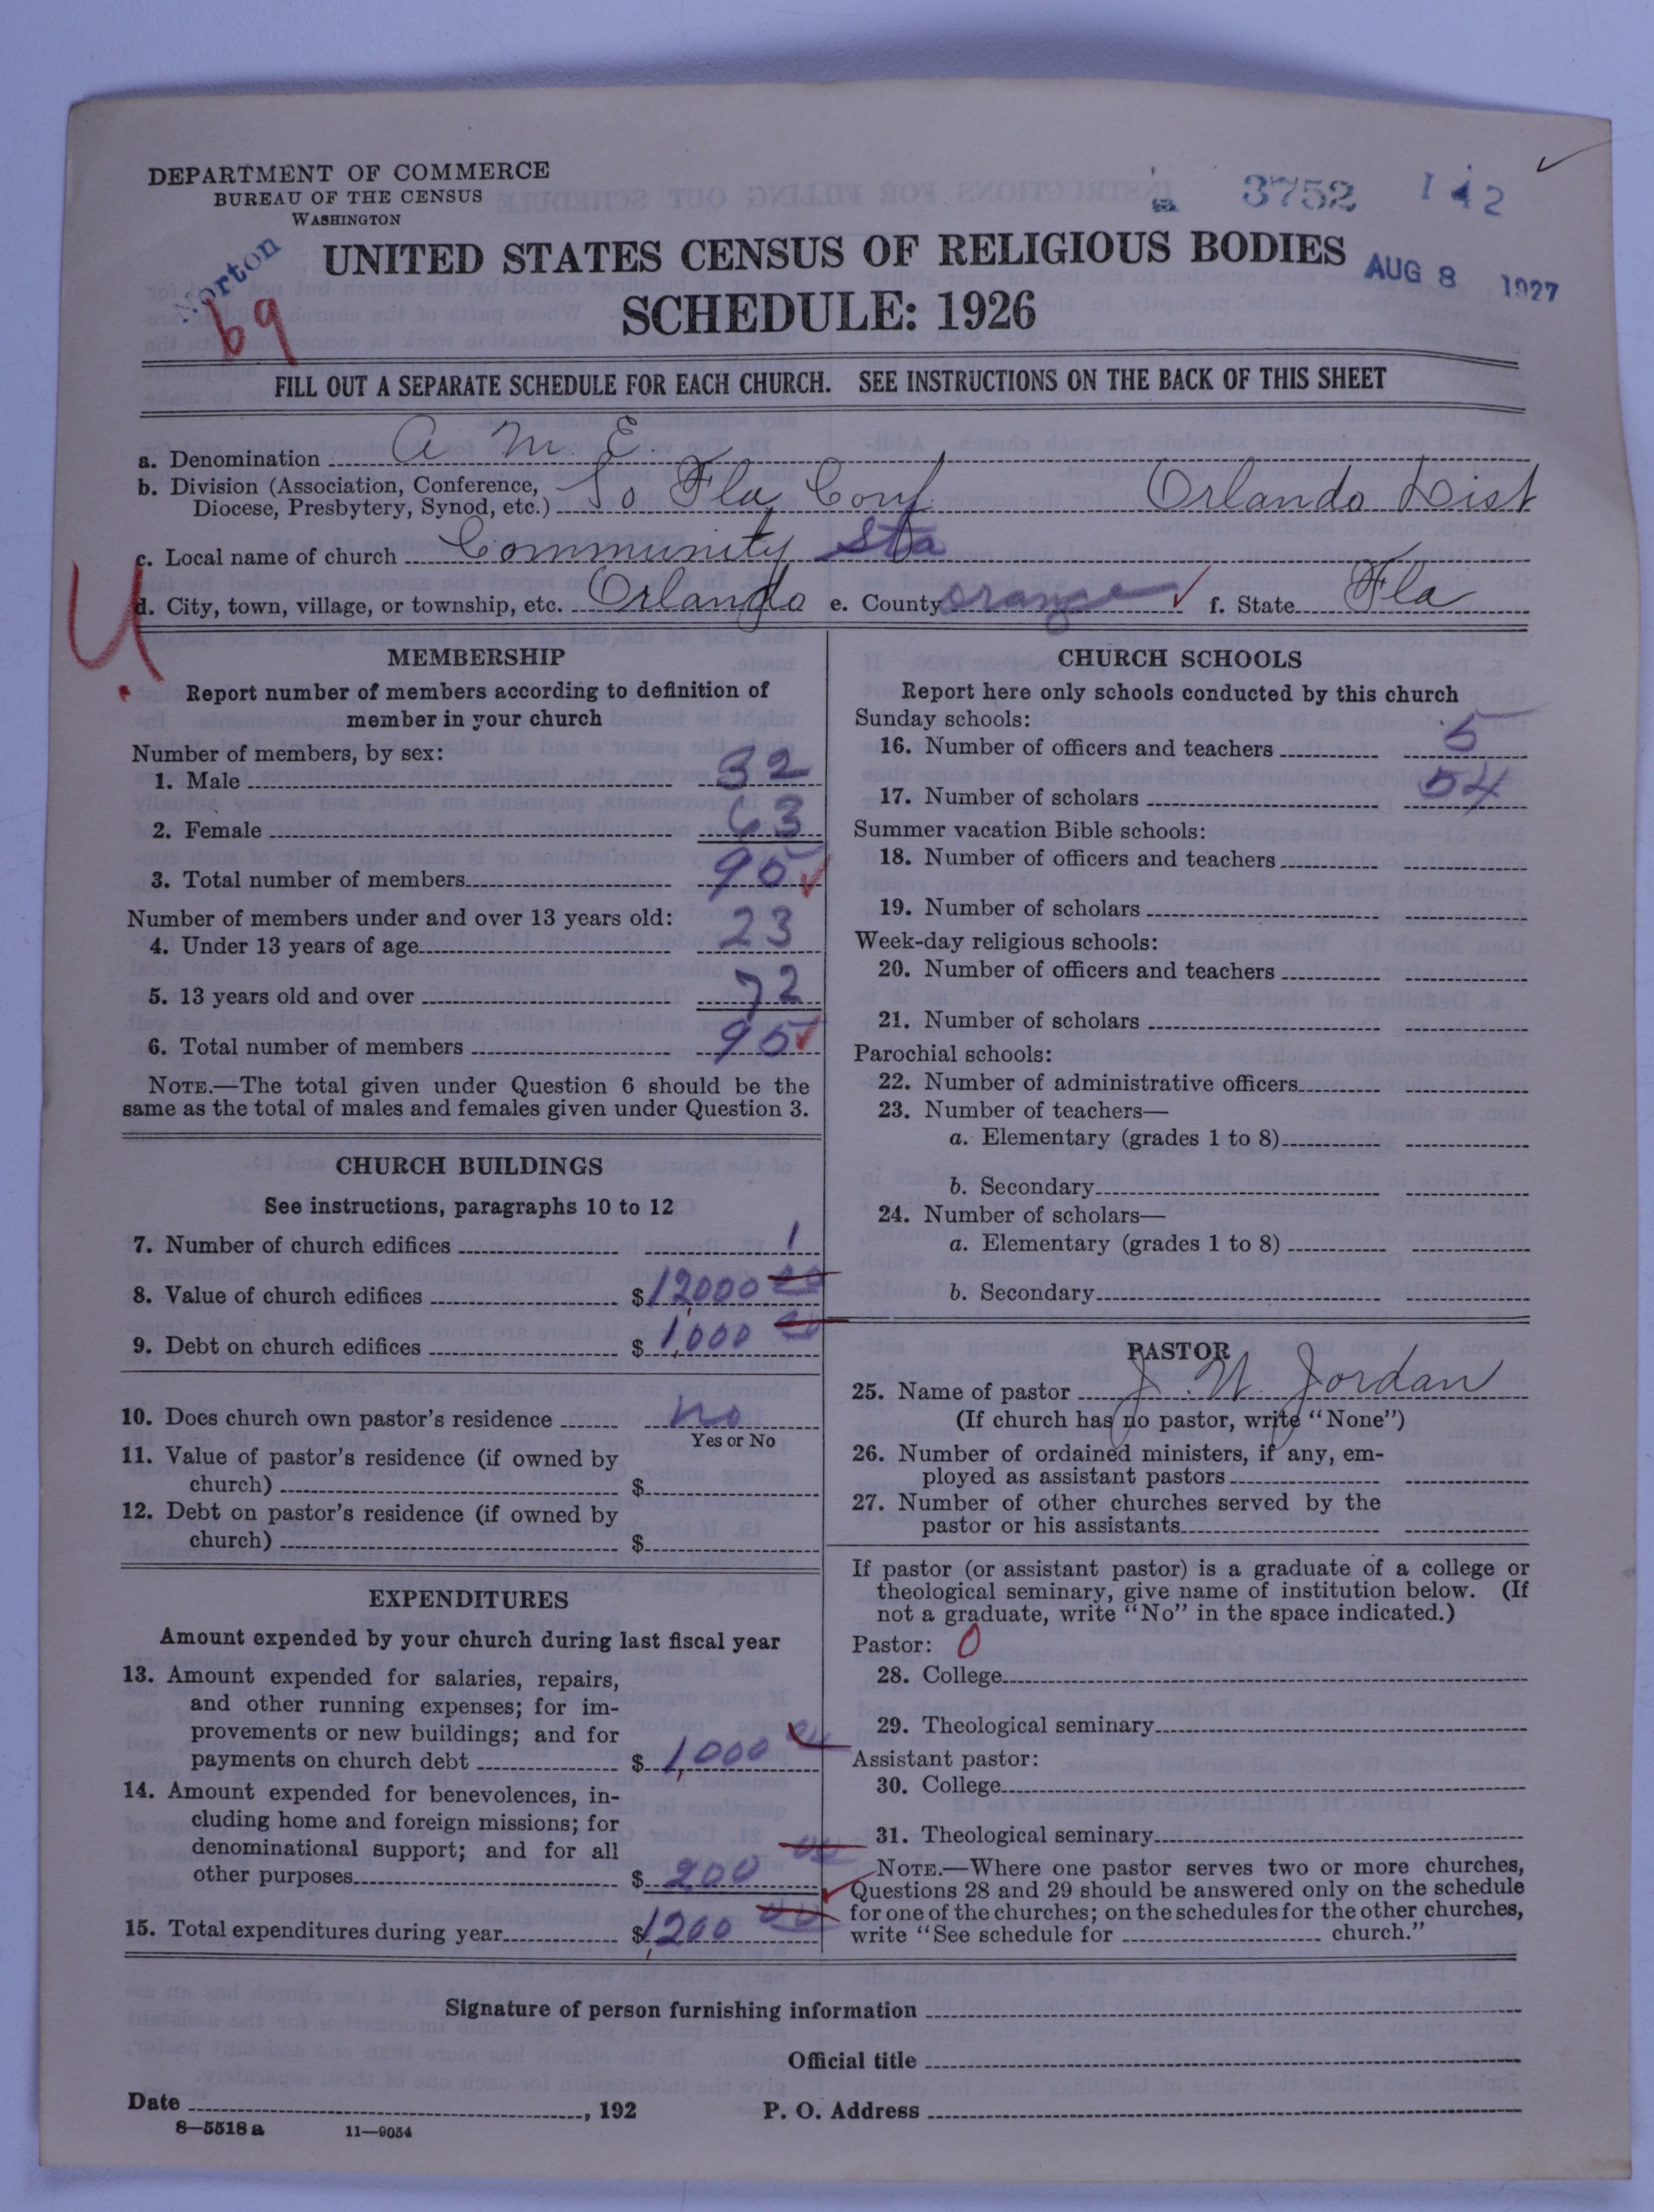 DEPARTMENT OF COMMERCE
BUREAU OF THE CENSUS
WASHINGTON
3752 142
Norton
69
UNITED STATES CENSUS OF RELIGIOUS BODIES
AUG 8 1927
SCHEDULE: 1926
FILL OUT A SEPARATE SCHEDULE FOR EACH CHURCH. SEE INSTRUCTIONS ON THE BACK OF THIS SHEET
a. Denomination A. M. E.
b. Division (Association, Conference, Diocese, Presbytery, Synod, etc.) So Fla, Conf. Orlando Dist
c. Local name of church Community Sta
d. City, town, village, or township, etc. Orlando e. County Orange f. State Fla
U
MEMBERSHIP
Report number of members according to definition of
member in your church
Number of members, by sex:
1. Male 32
2. Female 63
3. Total number of members 95
Number of members under and over 13 years old:
4. Under 13 years of age 23
5. 13 years old and over 72
6. Total number of members 95
NOTE.—The total given under Question 6 should be the
same as the total of males and females given under Question 3.
CHURCH BUILDINGS
See instructions, paragraphs 10 to 12
7. Number of church edifices 1
8. Value of church edifices $12,000 00
9. Debt on church edifices $1,000 00
10. Does church own pastor's residence no
Yes or No
11. Value of pastor's residence (if owned by
church) $
12. Debt on pastor's residence (if owned by
church) $
EXPENDITURES
Amount expended by your church during last fiscal year
13. Amount expended for salaries, repairs,
and other running expenses; for im-
provements or new buildings; and for
payments on church debt $1,000 00
14. Amount expended for benevolences, in-
cluding home and foreign missions; for
denominational support; and for all
other purposes $200 00
15. Total expenditures during year $1,200 00
CHURCH SCHOOLS
Report here only schools conducted by this church
Sunday schools:
16. Number of officers and teachers 5
17. Number of scholars 54
Summer vacation Bible schools:
18. Number of officers and teachers
19. Number of scholars
Week-day religious schools:
20. Number of officers and teachers
21. Number of scholars
Parochial schools:
22. Number of administrative officers
23. Number of teachers—
a. Elementary (grades 1 to 8)
b. Secondary
24. Number of scholars—
a. Elementary (grades 1 to 8)
b. Secondary
PASTOR
25. Name of pastor J. W. Jordan
(If church has no pastor, write "None")
26. Number of ordained ministers, if any, em-
ployed as assistant pastors
27. Number of other churches served by the
pastor or his assistants
If pastor (or assistant pastor) is a graduate of a college or
theological seminary, give name of institution below. (If
not a graduate, write "No" in the space indicated.)
Pastor: 0
28. College
29. Theological seminary
Assistant pastor:
30. College
31. Theological seminary
NOTE.—Where one pastor serves two or more churches,
Questions 28 and 29 should be answered only on the schedule
for one of the churches; on the schedules for the other churches,
write "See schedule for church."
Signature of person furnishing information
Official title
Date , 192 P. O. Address
8—5518 a 11—9054